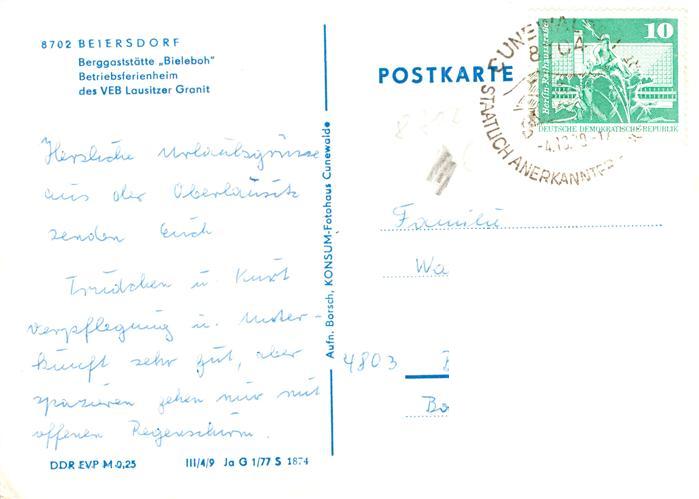 8702 BEIERSDORF
Berggaststätte „Bieleboh"
Betriebsferienheim
des VEB Lausitzer Granit
Herzliche Urlaubsgrüsse
aus der Oberlausitz
senden Euch
Trudchen u. Kurt
Verpflegung u. Unter-
kunft sehr gut, aber
spazieren gehen nur mit
offenen Regenschirm.
DDR EVP M 0,25 III/4/9 Ja G 1/77 S 1874
Aufn. Borsch, KONSUM-Fotohaus Cunewalde
POSTKARTE
10
Berlin-Rathausstraße
DEUTSCHE DEMOKRATISCHE REPUBLIK
STAATLICH ANERKANNTER
Familie
Wa
4803
Ba